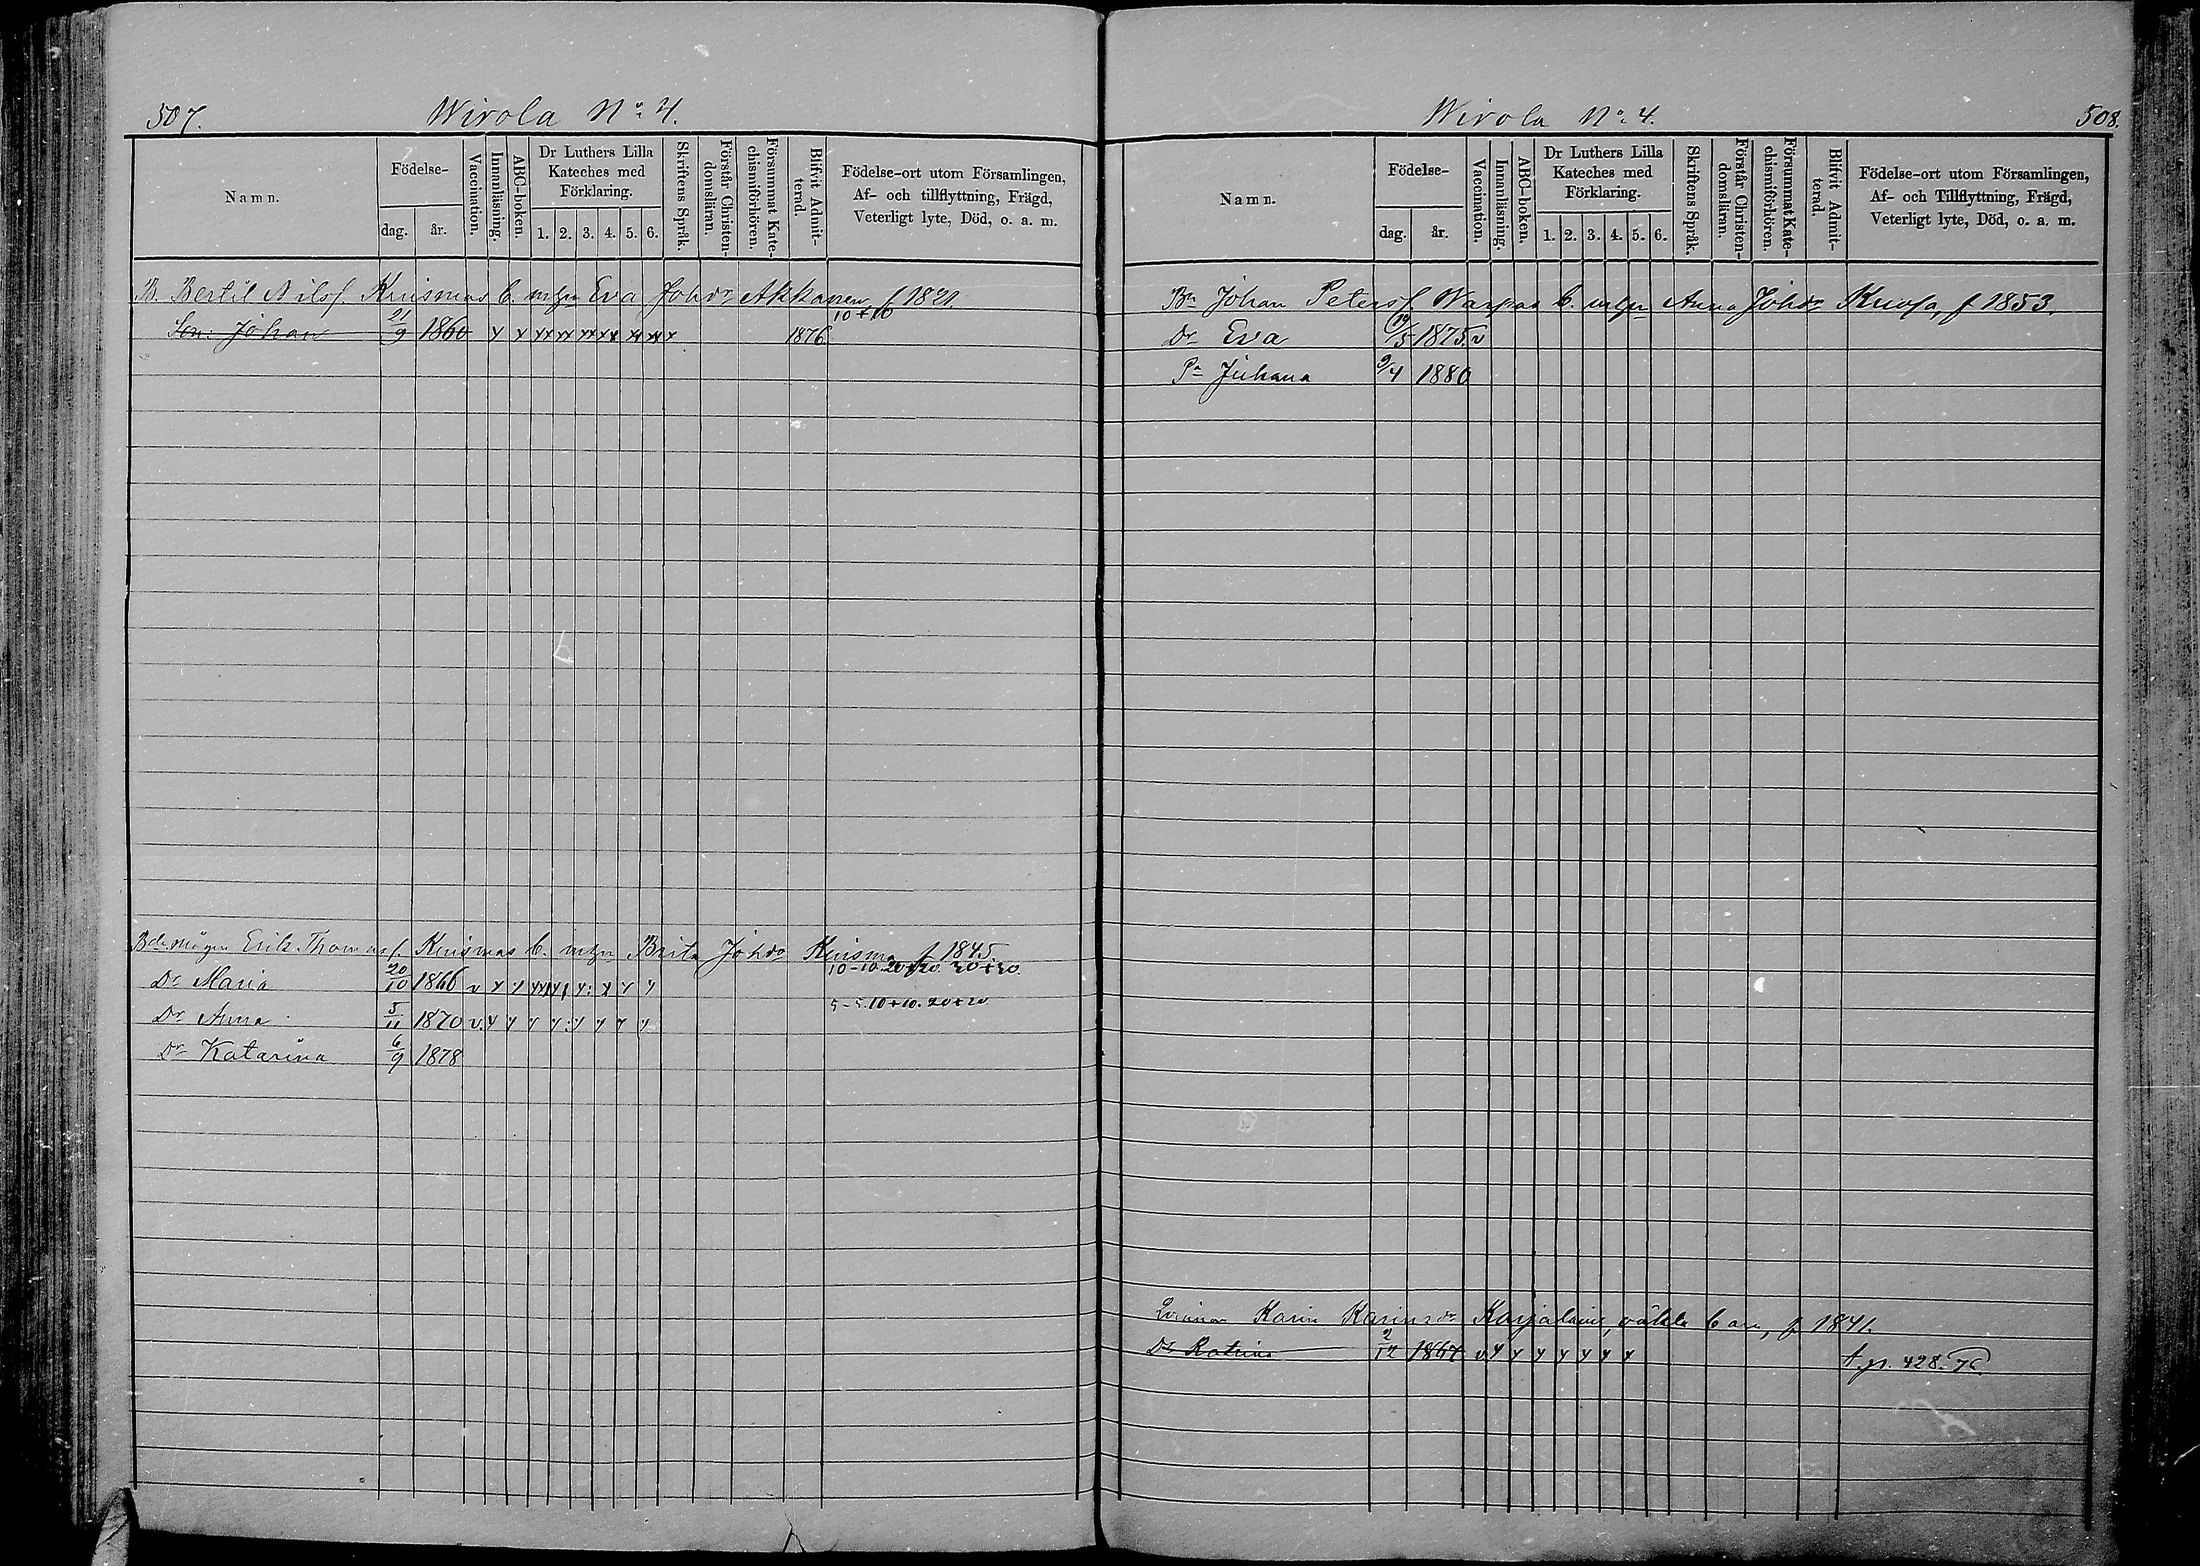 507. Wirola No 4.
Namn.
Födelse-
dag. år.
Vaccination.
Innanläsning.
ABC-boken.
Dr Luthers Lilla Kateches med Förklaring.
1. 2. 3. 4. 5. 6.
Skriftens Språk.
Förstår Christen-domsläran.
Försummat Kate-chismiförhören.
Blifvit Admit-terad.
Födelse-ort utom Församlingen,
Af- och tillflyttning, Frägd,
Veterligt lyte, Död, o. a. m.
B. Bertil Nilsf. Kuismas b. m hu Eva Johdr Akkanen, f 1821
10+10
Son: Johan 21/9 1860 x x xx xx xx xx xx xx x 1876
Erik Thomasf. Kuismas b. m hu Brita Johdr Kuisma f 1845.
10-10 20+20 20+20
Dr Maria 20/10 1866 v
5-5. 10+10. 20+20
Dr Anna 5/11 1870 v
Dr Katarina 6/9 1878
Wirola No 4. 508.
Namn.
Födelse-
dag. år.
Vaccination.
Innanläsning.
ABC-boken.
Dr Luthers Lilla Kateches med Förklaring.
1. 2. 3. 4. 5. 6.
Skriftens Språk.
Förstår Christen-domsläran.
Försummat Kate-chismiförhören.
Blifvit Admit-terad.
Födelse-ort utom Församlingen,
Af- och Tillflyttning, Frägd,
Veterligt lyte, Död, o. a. m.
Bn Johan Petersf Warpas b. m hu Anna Johdr f 1853.
Dr Eva 19/5 1875. v
Pn Juhana 9/4 1880
Qvinnan Karin Karjalains, oäkta barn, f 1841.
Dr Katrina 2/12 1867 v y y y y y y y
t. p. 428. 76